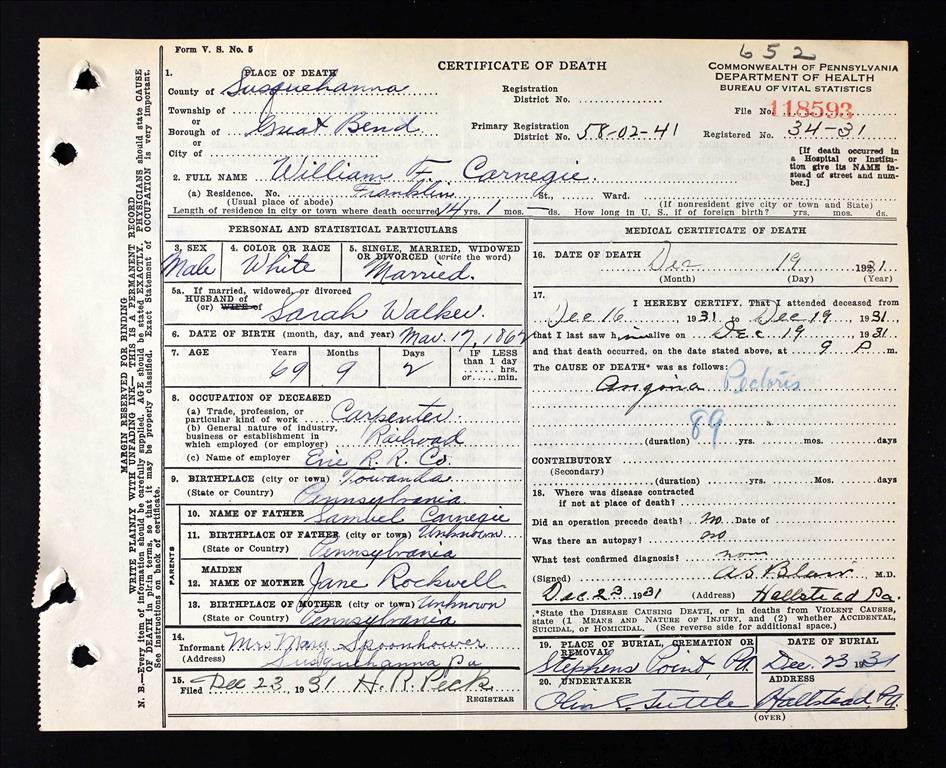 652
Form V. S. No. 5
CERTIFICATE OF DEATH
COMMONWEALTH OF PENNSYLVANIA
DEPARTMENT OF HEALTH
BUREAU OF VITAL STATISTICS
1. PLACE OF DEATH
County of Susquehanna
Township of
or
Borough of Great Bend
or
City of
Registration
District No.
Primary Registration
District No. 58-02-41
File No. 118593
Registered No. 34-31
[If death occurred in
a Hospital or Institu-
tion give its NAME in-
stead of street and num-
ber.]
2. FULL NAME William F. Carnegie.
(a) Residence. No. Franklin St., Ward.
(Usual place of abode) (If nonresident give city or town and State)
Length of residence in city or town where death occurred 14 yrs. 1 mos. — ds. How long in U. S., if of foreign birth? yrs. mos. ds.
PERSONAL AND STATISTICAL PARTICULARS
3. SEX
Male
4. COLOR OR RACE
White
5. SINGLE, MARRIED, WIDOWED
OR DIVORCED (write the word)
Married.
5a. If married, widowed, or divorced
HUSBAND of
(or) WIFE of
Sarah Walker.
6. DATE OF BIRTH (month, day, and year) Mar. 17, 1862
7. AGE Years Months Days
69 9 2
IF LESS
than 1 day
hrs.
or min.
8. OCCUPATION OF DECEASED
(a) Trade, profession, or
particular kind of work Carpenter.
(b) General nature of industry,
business or establishment in
which employed (or employer) Railroad
(c) Name of employer Erie R. R. Co.
9. BIRTHPLACE (city or town) Towanda
(State or Country) Pennsylvania
PARENTS
10. NAME OF FATHER Samuel Carnegie
11. BIRTHPLACE OF FATHER (city or town) Unknown
(State or Country) Pennsylvania
MAIDEN
12. NAME OF MOTHER Jane Rockwell
13. BIRTHPLACE OF MOTHER (city or town) Unknown
(State or Country) Pennsylvania
14.
Informant Mrs Mary Spoonhower
(Address) Susquehanna Pa
15.
Filed Dec 23 1931 H. R. Peck
REGISTRAR
MEDICAL CERTIFICATE OF DEATH
16. DATE OF DEATH Dec 19 1931
(Month) (Day) (Year)
17. I HEREBY CERTIFY, That I attended deceased from
Dec. 16 1931 to Dec 19 1931
that I last saw him alive on Dec 19 1931
and that death occurred, on the date stated above, at 9 P m.
The CAUSE OF DEATH* was as follows:
Angina Pectoris
89
(duration) yrs. mos. days
CONTRIBUTORY
(Secondary)
(duration) yrs. mos. days
18. Where was disease contracted
if not at place of death?
Did an operation precede death? no Date of
Was there an autopsy? no
What test confirmed diagnosis? none
(Signed) A. S. Blair M.D.
Dec. 23 1931 (Address) Hallstead Pa.
*State the DISEASE CAUSING DEATH, or in deaths from VIOLENT CAUSES,
state (1) MEANS AND NATURE OF INJURY, and (2) whether ACCIDENTAL,
SUICIDAL, or HOMICIDAL. (See reverse side for additional space.)
19. PLACE OF BURIAL, CREMATION OR
REMOVAL
Stephens Point, Pa.
DATE OF BURIAL
Dec. 23 1931
20. UNDERTAKER
Olin E. Tuttle
ADDRESS
Hallstead, Pa.
(OVER)
MARGIN RESERVED FOR BINDING
WRITE PLAINLY WITH UNFADING INK—THIS IS A PERMANENT RECORD
N. B.—Every item of information should be carefully supplied. AGE should be stated EXACTLY. PHYSICIANS should state CAUSE
OF DEATH in plain terms, so that it may be properly classified. Exact Statement of OCCUPATION is very important.
See instructions on back of certificate.